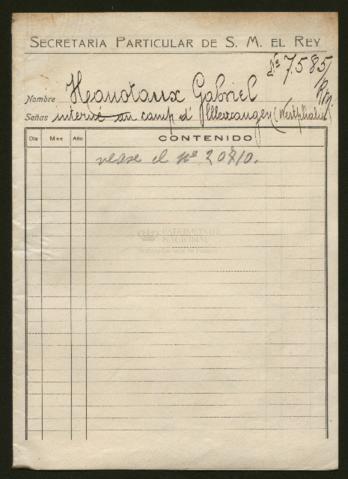 SECRETARÍA PARTICULAR DE S. M. EL REY
Nº 7.585
Nombre Hanotaux Gabriel
Señas interné au camp d' (Westphalie)
Dia Mes Año CONTENIDO
vease el nº 20710.
PATRIMONIO
NACIONAL